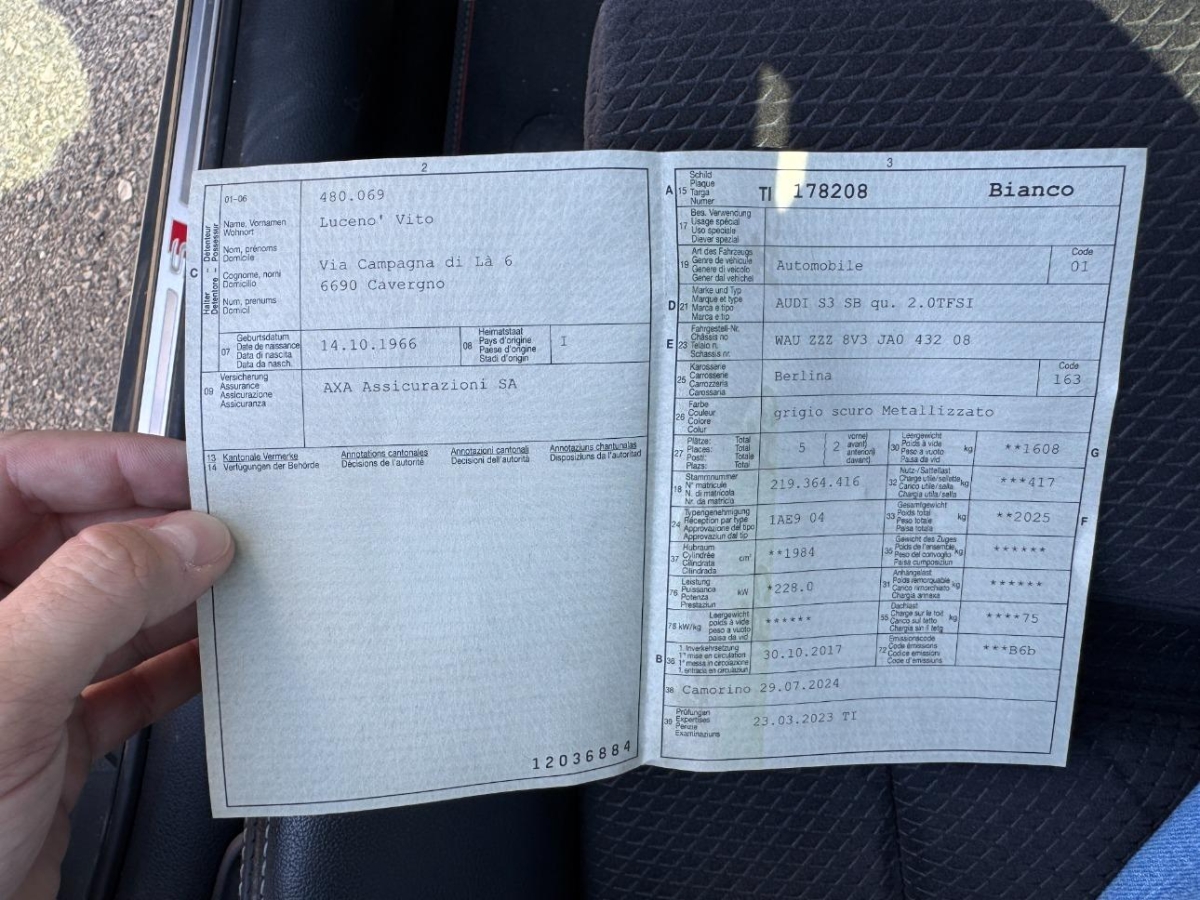 2
01-06
480.069
Halter - Détenteur
Detentore - Possessur
C
Name, Vornamen
Wohnort
Nom, prénoms
Domicile
Cognome, nomi
Domicilio
Num, prenums
Domicil
Luceno' Vito
Via Campagna di Là 6
6690 Cavergno
07
Geburtsdatum
Date de naissance
Data di nascita
Data da nasch.
14.10.1966
08
Heimatstaat
Pays d'origine
Paese d'origine
Stadi d'origin
I
09
Versicherung
Assurance
Assicurazione
Assicuranza
AXA Assicurazioni SA
13 Kantonale Vermerke
14 Verfügungen der Behörde
Annotations cantonales
Décisions de l'autorité
Annotazioni cantonali
Decisioni dell'autorità
Annotaziuns chantunalas
Disposiziuns da l'autoritad
12036884
3
A
15
Schild
Plaque
Targa
Numer
TI 178208 Bianco
17
Bes. Verwendung
Usage spécial
Uso speciale
Diever spezial
19
Art des Fahrzeugs
Genre de véhicule
Genere di veicolo
Gener dal vehichel
Automobile
Code
01
D
21
Marke und Typ
Marque et type
Marca e tipo
Marca e tip
AUDI S3 SB qu. 2.0TFSI
E
23
Fahrgestell-Nr.
Châssis no
Telaio n.
Schassis nr.
WAU ZZZ 8V3 JA0 432 08
25
Karosserie
Carrosserie
Carrozzeria
Carossaria
Berlina
Code
163
26
Farbe
Couleur
Colore
Colur
grigio scuro Metallizzato
27
Plätze: Total
Places: Total
Posti: Totale
Plazs: Total
5
2
vorne)
avant)
anteriori)
davant)
30
Leergewicht
Poids à vide
Peso a vuoto
Paisa da vid
kg
**1608
G
18
Stammnummer
N° matricule
N. di matricola
Nr. da matricla
219.364.416
32
Nutz-/Sattellast
Charge utile/sellette
Carico utile/sella
Chargia utila/sella
kg
***417
24
Typengenehmigung
Réception par type
Approvazione del tipo
Approvaziun dal tip
1AE9 04
33
Gesamtgewicht
Poids total
Peso totale
Paisa totala
kg
**2025
F
37
Hubraum
Cylindrée
Cilindrata
Cilindrada
cm³
**1984
35
Gewicht des Zuges
Poids de l'ensemble
Peso del convoglio
Paisa cumposiziun
kg
******
76
Leistung
Puissance
Potenza
Prestaziun
kW
*228.0
31
Anhängelast
Poids remorquable
Carico rimorchiato
Chargia annexa
kg
******
78 kW/kg
Leergewicht
poids à vide
peso a vuoto
paisa da vid
******
55
Dachlast
Charge sur le toit
Carico sul tetto
Chargia sin il tetg
kg
****75
B
36
1. Inverkehrsetzung
1re mise en circulation
1a messa in circolazione
1. entrada en circulaziun
30.10.2017
72
Emissionscode
Code émissions
Codice emissioni
Code d'emissiuns
***B6b
38
Camorino 29.07.2024
39
Prüfungen
Expertises
Perizie
Examinaziuns
23.03.2023 TI